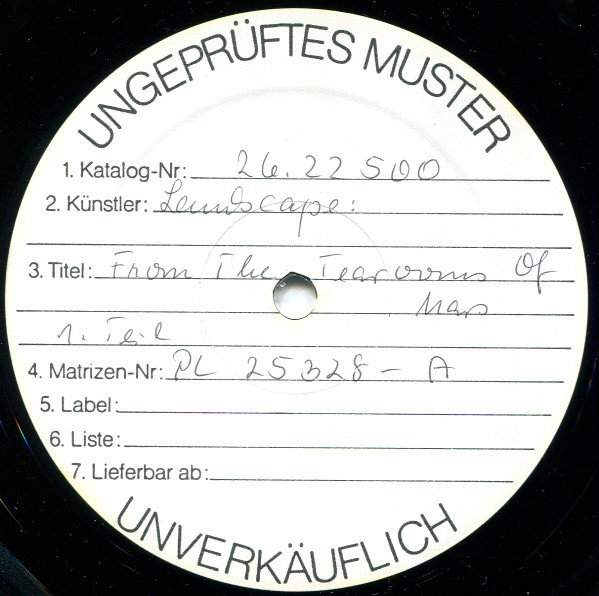 UNGEPRÜFTES MUSTER
1. Katalog-Nr: 26.22 500
2. Künstler: Landscape:
3. Titel: From The Tearooms Of
Mars
1. Teil
4. Matrizen-Nr: PL 25328 - A
5. Label:
6. Liste:
7. Lieferbar ab:
UNVERKÄUFLICH